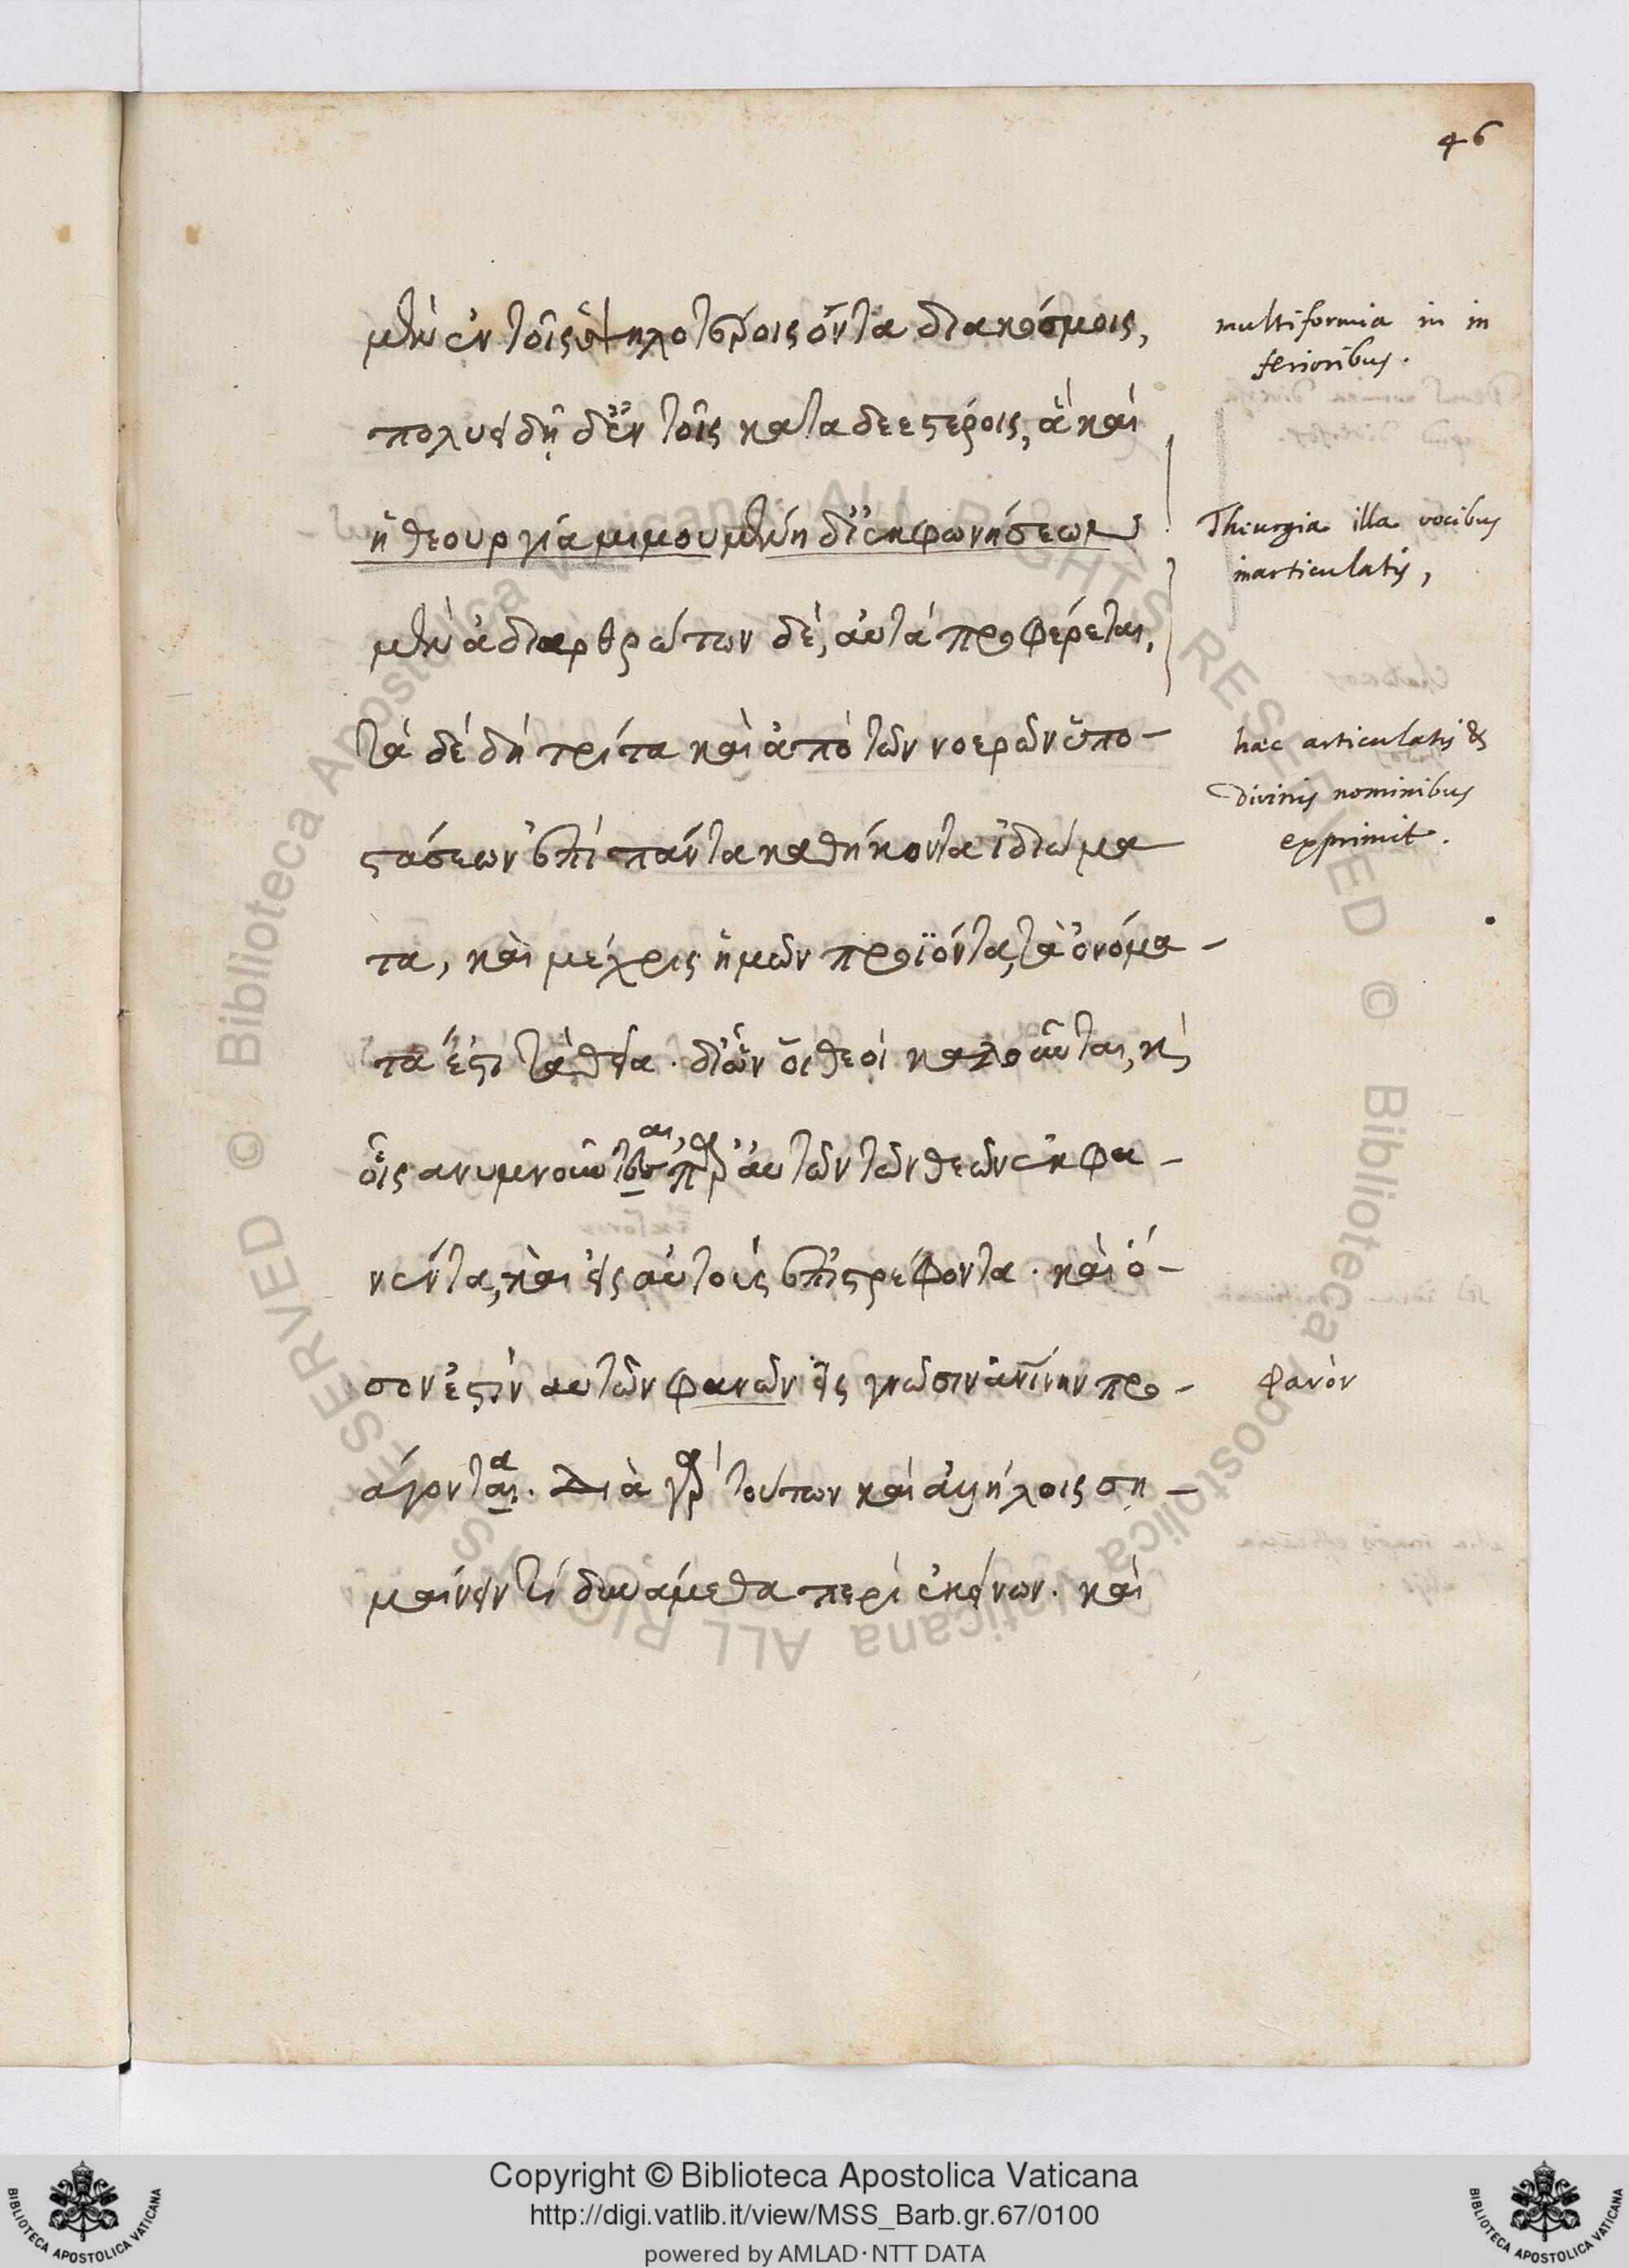 46
μὲν ἐν τοῖς ὑψηλοτέροις ὄντα διακόσμοις,
πολυειδῆ δ' ἐν τοῖς καταδεεστέροις, ἃ καὶ
ἡ θεουργία μιμουμένη δι' ἐκφωνήσεων
μὲν ἀδιαρθρώτων δὲ, αὐτὰ προφέρεται.
τὰ δὲ δὴ τρίτα καὶ ἀπὸ τῶν νοερῶν ὑπο-
στάσεων ἐπὶ πάντα καθήκοντα ἰδιώμα
τα, καὶ μέχρις ἡμῶν προϊόντα, τὰ ὀνόμα-
τα ἐστι τὰ θεῖα. δι' ὧν οἱ θεοὶ καλοῦνται, καὶ
οἷς ανυμνοῦνται, παρ' αὐτῶν τῶν θεῶν ἐκφα-
νέντα, καὶ εἰς αὐτοὺς ἐπιστρέφοντα. καὶ ὅ-
σον ἐστὶν αὐτῶν φανῶν εἰς γνῶσιν ἀνίνην προ-
άγοντα. Διὰ γὰρ τούτων καὶ ἀλλήλοις ση-
μαίνειν τὶ δυνάμεθα περὶ ἐκείνων. καὶ
multiformia in in
ferioribus.
Theurgia illa vocibus
inarticulatis,
hac articulatis &
divinis nominibus
exprimit.
φανὸν
© Biblioteca Apostolica Vaticana ALL RIGHTS RESERVED © Biblioteca Apostolica Vaticana ALL RIGHTS RESERVED
Copyright © Biblioteca Apostolica Vaticana
http://digi.vatlib.it/view/MSS_Barb.gr.67/0100
powered by AMLAD·NTT DATA
BIBLIOTECA APOSTOLICA VATICANA
BIBLIOTECA APOSTOLICA VATICANA